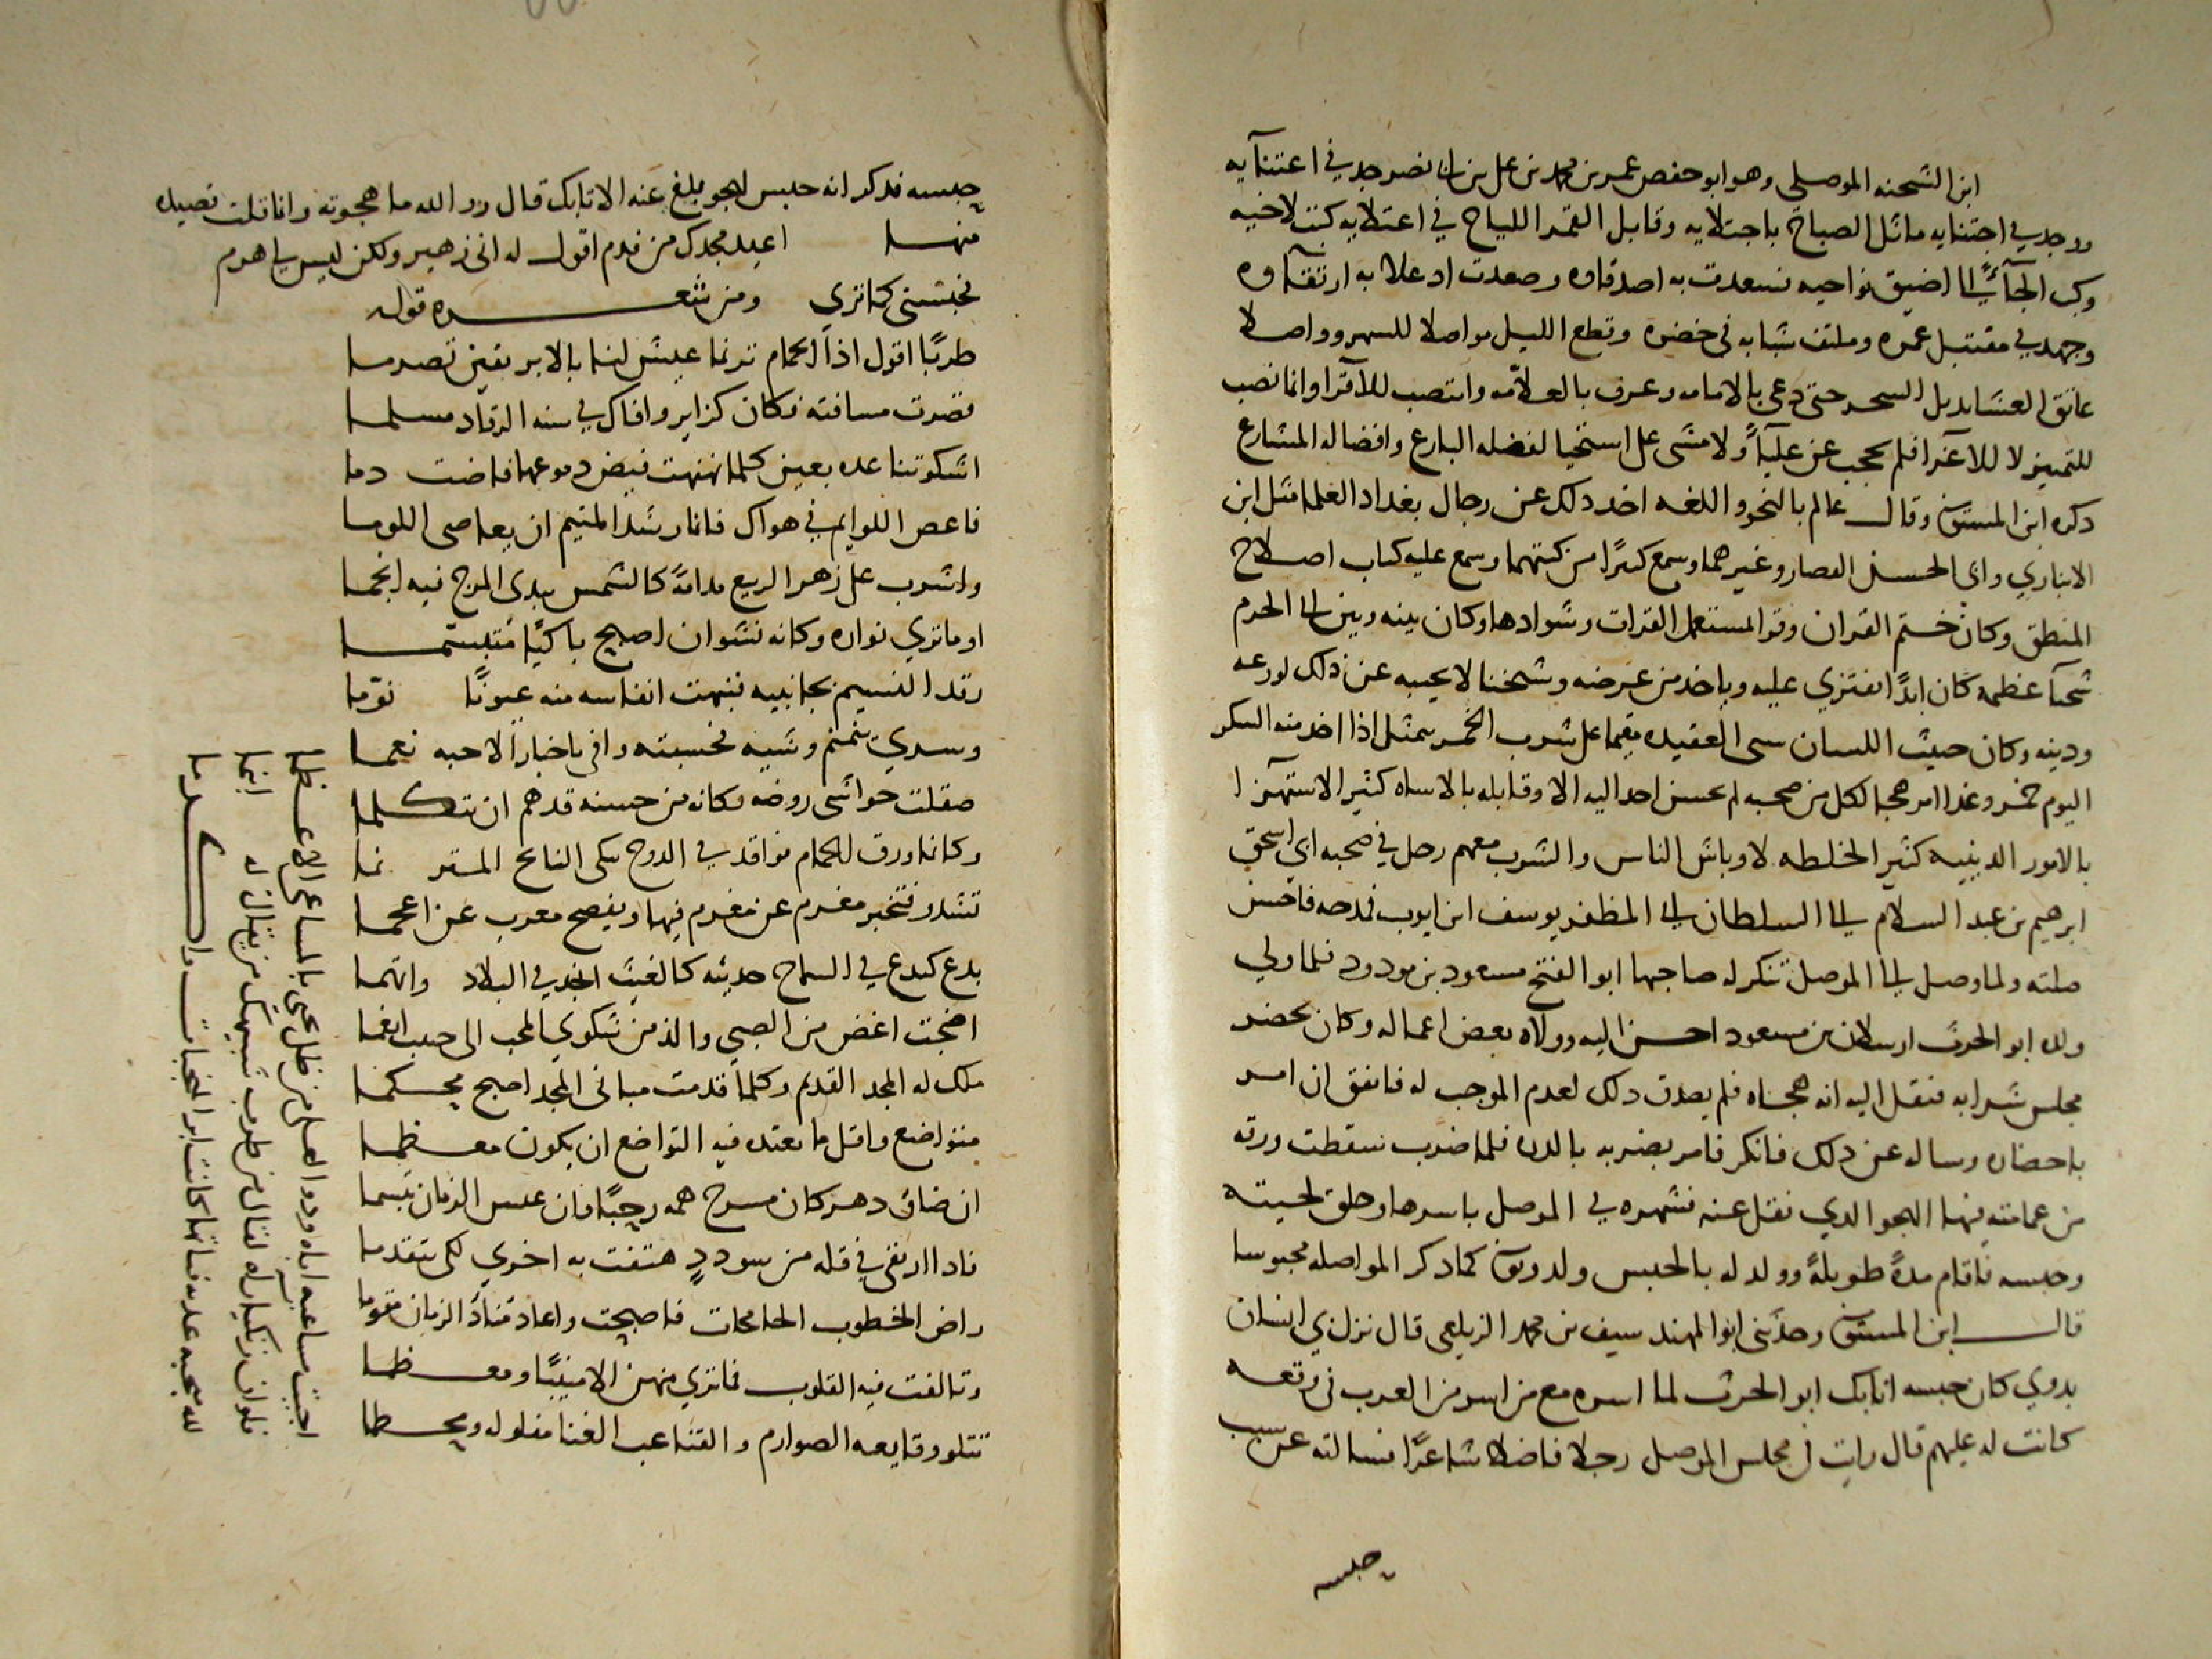 ابن الشحنه الموصلى وهو ابو حفص عمر بن محمد بن على بن ابى نصر جد في اعتنآيه
ووجد في اجتنايه ماثل الصباح باجتلايه وقابل القمر اللياح في اعتلايه كنت لاخيه
اضيق نواحيه فسعدت به اصدقاوه وصعدت اد علا به ارتقآوه
وجهد في مقتبل عمره وملتف شبابه فى خضره وقطع الليل مواصلا للسهر وواصلا
عانق العشا بديل السحر حتى دعى بالامامه وعرف بالعلآمه وانتصب للاقرا وانما نصب
للتمييز لا للاغرا فلم يحجب عن عليآء ولا مشى على استحيا لفضله البارع وافضاله المشارع
دكره ابن المستوفى وقال عالم بالنحو واللغه اخد دلك عن رجال بغداد العلما مثل ابن
الانباري وابى الحسن العصار وغيرهما وسمع كثيرًا من كتبهما وسمع عليه كتاب اصلاح
المنطق وكان ختم القران وقرا المستعمل القرات وشوادها وكان بينه وبين ابى الحرم
شحنآ عظيمه كان ابدًا يفتري عليه وياخد من عرضه وشيخنا لا يجيبه عن ذلك لورعه
ودينه وكان خبيث اللسان سى العقيده مقيما على شرب الخمر يتمثل اذا اخد منه السكر
اليوم خمر وغدا امر هجا لكل من صحبه لم يحسن احد اليه الا وقابله بالاساه كثير الاستهزا
بالامور الدينيه كثير الخلطه لاوباش الناس والشرب معهم رحل في صحبه ابي اسحق
ابرهيم بن عبد السلام الى السلطان ابى المظفر يوسف ابن ايوب فمدحه فاحسن
صلته ولما وصل الى الموصل تنكر له صاحبها ابو الفتح مسعود بن مودود فلما ولي
ولده ابو الحرث ارسلان بن مسعود احسن اليه وولاه بعض اعماله وكان يحضر
مجلس شرابه فنقل اليه انه هجاه فلم يصدق دلك لعدم الموجب له فاتفق ان امر
باحضاره وساله عن دلك فانكر فامر بضربه بالدره فلما ضرب سقطت ورقه
من عمامته فيها الهجو الدي نقل عنه فشهره في الموصل باسرها وحلق لحيته
وحبسه فاقام مدة طويلة وولد له بالحبس ولد وتوفى كما دكر المواصله محبوسا
قال ابن المستوفى وحدثنى ابو المهند سيف بن محمد الزيلعى قال نزل بي انسان
بدوي كان حبسه اتابك ابو الحرث لما اسره مع من اسر من العرب فى وقعه
كانت له عليهم قال رايت فى مجلس الموصل رجلا فاضلا شاعرًا فسالته عن سبب
حبسه
حبسه فدكر انه حبس لهجو بلغ عنه الاتابك قال والله ما هجوته وانا قلت قصيده
منها اعيد مجدك من ندم اقول له انى زهير ولكن ليس لي هرم
فحبسنى كما تري ومن شعره قوله
طربًا اقول اذا الحمام ترنما عيش لنا بالابرقين تصرما
قصرت مسافته فكان كزاير وافاك في سنه الرقاد مسلما
اشكو تناعده بعين كلما نهنهت فيض دموعها فاضت دما
فاعص اللوايم في هواك فانما رشد المتيم ان يعاصى اللوما
واشرب على زهر الربيع مدامةً كالشمس يبدى المزج فيه انجما
اوما تري نواره وكانه نشوان اصبح باكيًا متبسما
رقد النسيم بجانبيه فنبهت انفاسه منه عيونًا نوما
وسري ينمنم وشيه فحسبته وافى باخبار الاحبه نعما
صقلت حواشى روضه فكانه من حسنه قد هم ان يتكلما
وكانما ورق الحمام نواقد في الدوح يبكى النائح المترنما
تشدو فتخبر مغرم عن مغرم فيها ويفصح معرب عن اعجما
بدع كبدع في السماح حديثه كالغيث انجد في البلاد واتهما
اضحت اغض من الصبى والذ من شكوي المحب الى حبيب انعما
ملك له المجد القديم وكلما قدمت مبانى المجد اصبح محكما
متواضع واقل ما يعتده فيه التواضع ان يكون معظما
ان ضاق دهر كان مسرح همه رحبًا فان عبس الزمان تبسما
فادا ارتقى في قله من سودد هتفت به اخري لكى يتقدما
راض الخطوب الجامحات فاصبحت واعاد قناة الزمان مقوما
وتالفت فيه القلوب فما تري منهن الا منيبًا ومعظما
تتلو وقايعه الصوارم والقنا عب القنا مفلوله ومحطما